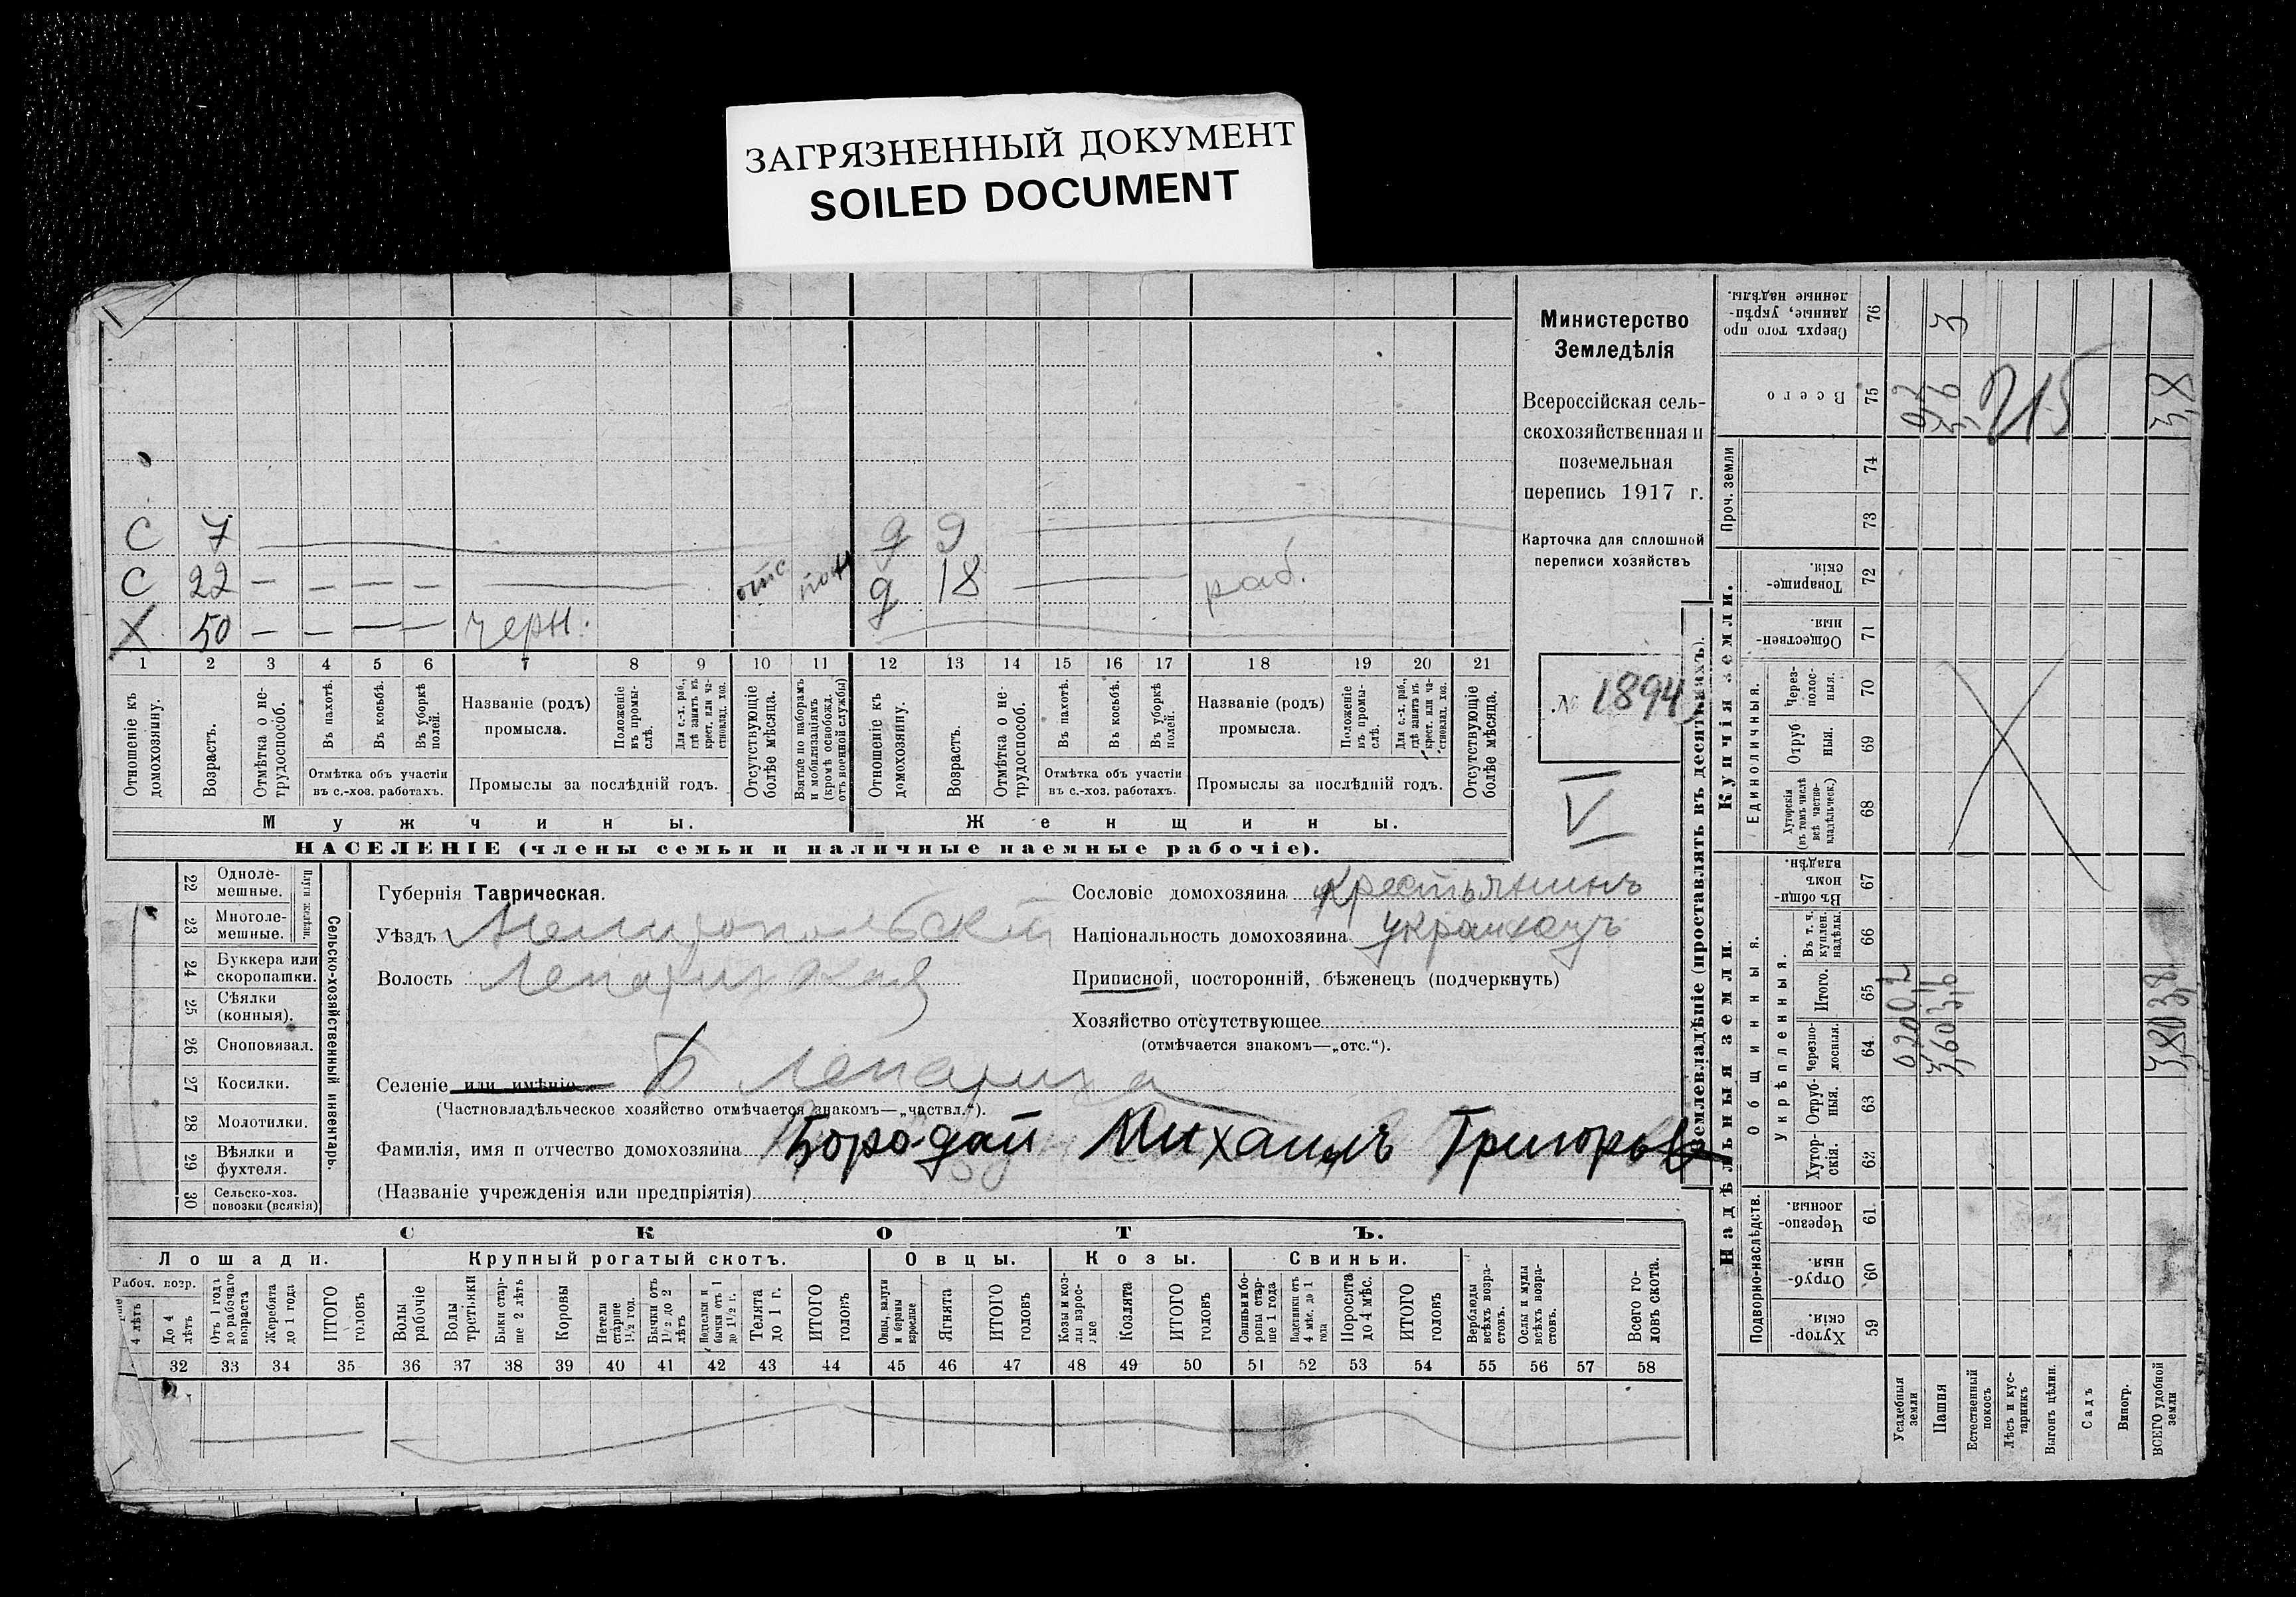 ЗАГРЯЗНЕННЫЙ ДОКУМЕНТ
SOILED DOCUMENT
Министерство
Земледѣлія
Всероссійская сель-
скохозяйственная и
поземельная
перепись 1917 г.
Карточка для сплошной
переписи хозяйствъ
№ 1894
V
С 7 д 9
С 22 — — — — отс д 18 раб.
Х 50 — — — — черн.
1 2 3 4 5 6 7 8 9 10 11 12 13 14 15 16 17 18 19 20 21
Отношеніе къ домохозяину.
Возрастъ.
Отмѣтка о не-трудоспособ.
Въ пахотѣ.
Въ косьбѣ.
Въ уборкѣ полей.
Отмѣтка объ участіи
въ с.-хоз. работахъ.
Названіе (родъ)
промысла.
Положеніе въ промы-слѣ.
Для с.-х. раб., гдѣ занятъ въ крест. или ча-стновлад. хоз.
Промыслы за послѣдній годъ.
Отсутствующіе болѣе мѣсяца.
Взятые по наборамъ и мобилизаціямъ (кромѣ освобожд. отъ военной службы)
Отношеніе къ домохозяину.
Возрастъ.
Отмѣтка о не-трудоспособ.
Въ пахотѣ.
Въ косьбѣ.
Въ уборкѣ полей.
Отмѣтка объ участіи
въ с.-хоз. работахъ.
Названіе (родъ)
промысла.
Положеніе въ промы-слѣ.
Для с.-х. раб., гдѣ занятъ въ крест. или ча-стновлад. хоз.
Промыслы за послѣдній годъ.
Отсутствующіе болѣе мѣсяца.
Мужчины. Женщины.
НАСЕЛЕНІЕ (члены семьи и наличные наемные рабочіе).
22 Одноле-мешные.
23 Многоле-мешные.
Плуги желѣзн.
24 Буккера или скоропашки.
25 Сѣялки (конныя).
26 Сноповязал.
27 Косилки.
28 Молотилки.
29 Вѣялки и фухтеля.
30 Сельско-хоз. повозки (всякія)
Сельско-хозяйственный инвентарь.
Губернія Таврическая.
Уѣздъ Мелитопольскій
Волость Лепатихская
Селеніе или имѣніе Б Лепатиха
(Частновладѣльческое хозяйство отмѣчается знакомъ—„частвл.“).
Фамилія, имя и отчество домохозяина Бородай Михаилъ Григорьев
(Названіе учрежденія или предпріятія)
Сословіе домохозяина крестьянинъ
Національность домохозяина украинецъ
Приписной, посторонній, бѣженецъ (подчеркнуть)
Хозяйство отсутствующее
(отмѣчается знакомъ—„отс.“).
СКОТЪ.
Лошади. Крупный рогатый скотъ. Овцы. Козы. Свиньи.
Рабоч. возр.
4 лѣтъ
До 4 лѣтъ
Отъ 1 года до рабочаго возраста
Жеребята до 1 года
ИТОГО головъ
Волы рабочіе
Волы третьяки
Быки стар-ше 2 лѣтъ
Коровы
Нетели старше 1½ год.
Бычки отъ 1½ до 2 лѣтъ
Подтелки и бычки отъ 1 до 1½ г.
Телята до 1 г.
ИТОГО головъ
Овцы, валухи и бараны взрослые
Ягнята
ИТОГО головъ
Козы и коз-лы взрос-лые
Козлята
ИТОГО головъ
Свиньи и бо-ровы стар-ше 1 года
Подсвинки отъ 4 мѣс. до 1 года
Поросята до 4 мѣс.
ИТОГО головъ
Верблюды всѣхъ возра-стовъ.
Ослы и мулы всѣхъ возра-стовъ.
Всего го-ловъ скота.
32 33 34 35 36 37 38 39 40 41 42 43 44 45 46 47 48 49 50 51 52 53 54 55 56 57 58
Землевладѣніе (проставлять въ десятинахъ).
Надѣльныя земли. Купчія земли.
Подворно-наслѣдств.
Хутор-скія. 59
Отруб-ныя. 60
Черезпо-лосныя. 61
Общинныя.
Укрѣпленныя.
Хутор-скія. 62
Отруб-ныя. 63
Черезпо-лосныя. 64
Итого. 65
Въ т. ч. куплен. надѣлы. 66
Въ общин-номъ владѣн. 67
Единоличныя.
Хуторскія (въ томъ числѣ всѣ частно-владѣльческ.) 68
Отруб-ныя. 69
Через-полос-ныя. 70
Обществен-ныя. 71
Товарище-скія. 72
Проч. земли 73 74
Всего 75
Сверхъ того про-данные, укрѣп-ленные надѣлы. 76
Усадебныя земли 0,2
Пашня 3,6 3
Естественный покосъ
Лѣсъ и кус-тарникъ
Выгонъ цѣлин.
Садъ
Виногр.
ВСЕГО удобной земли 3,8
215